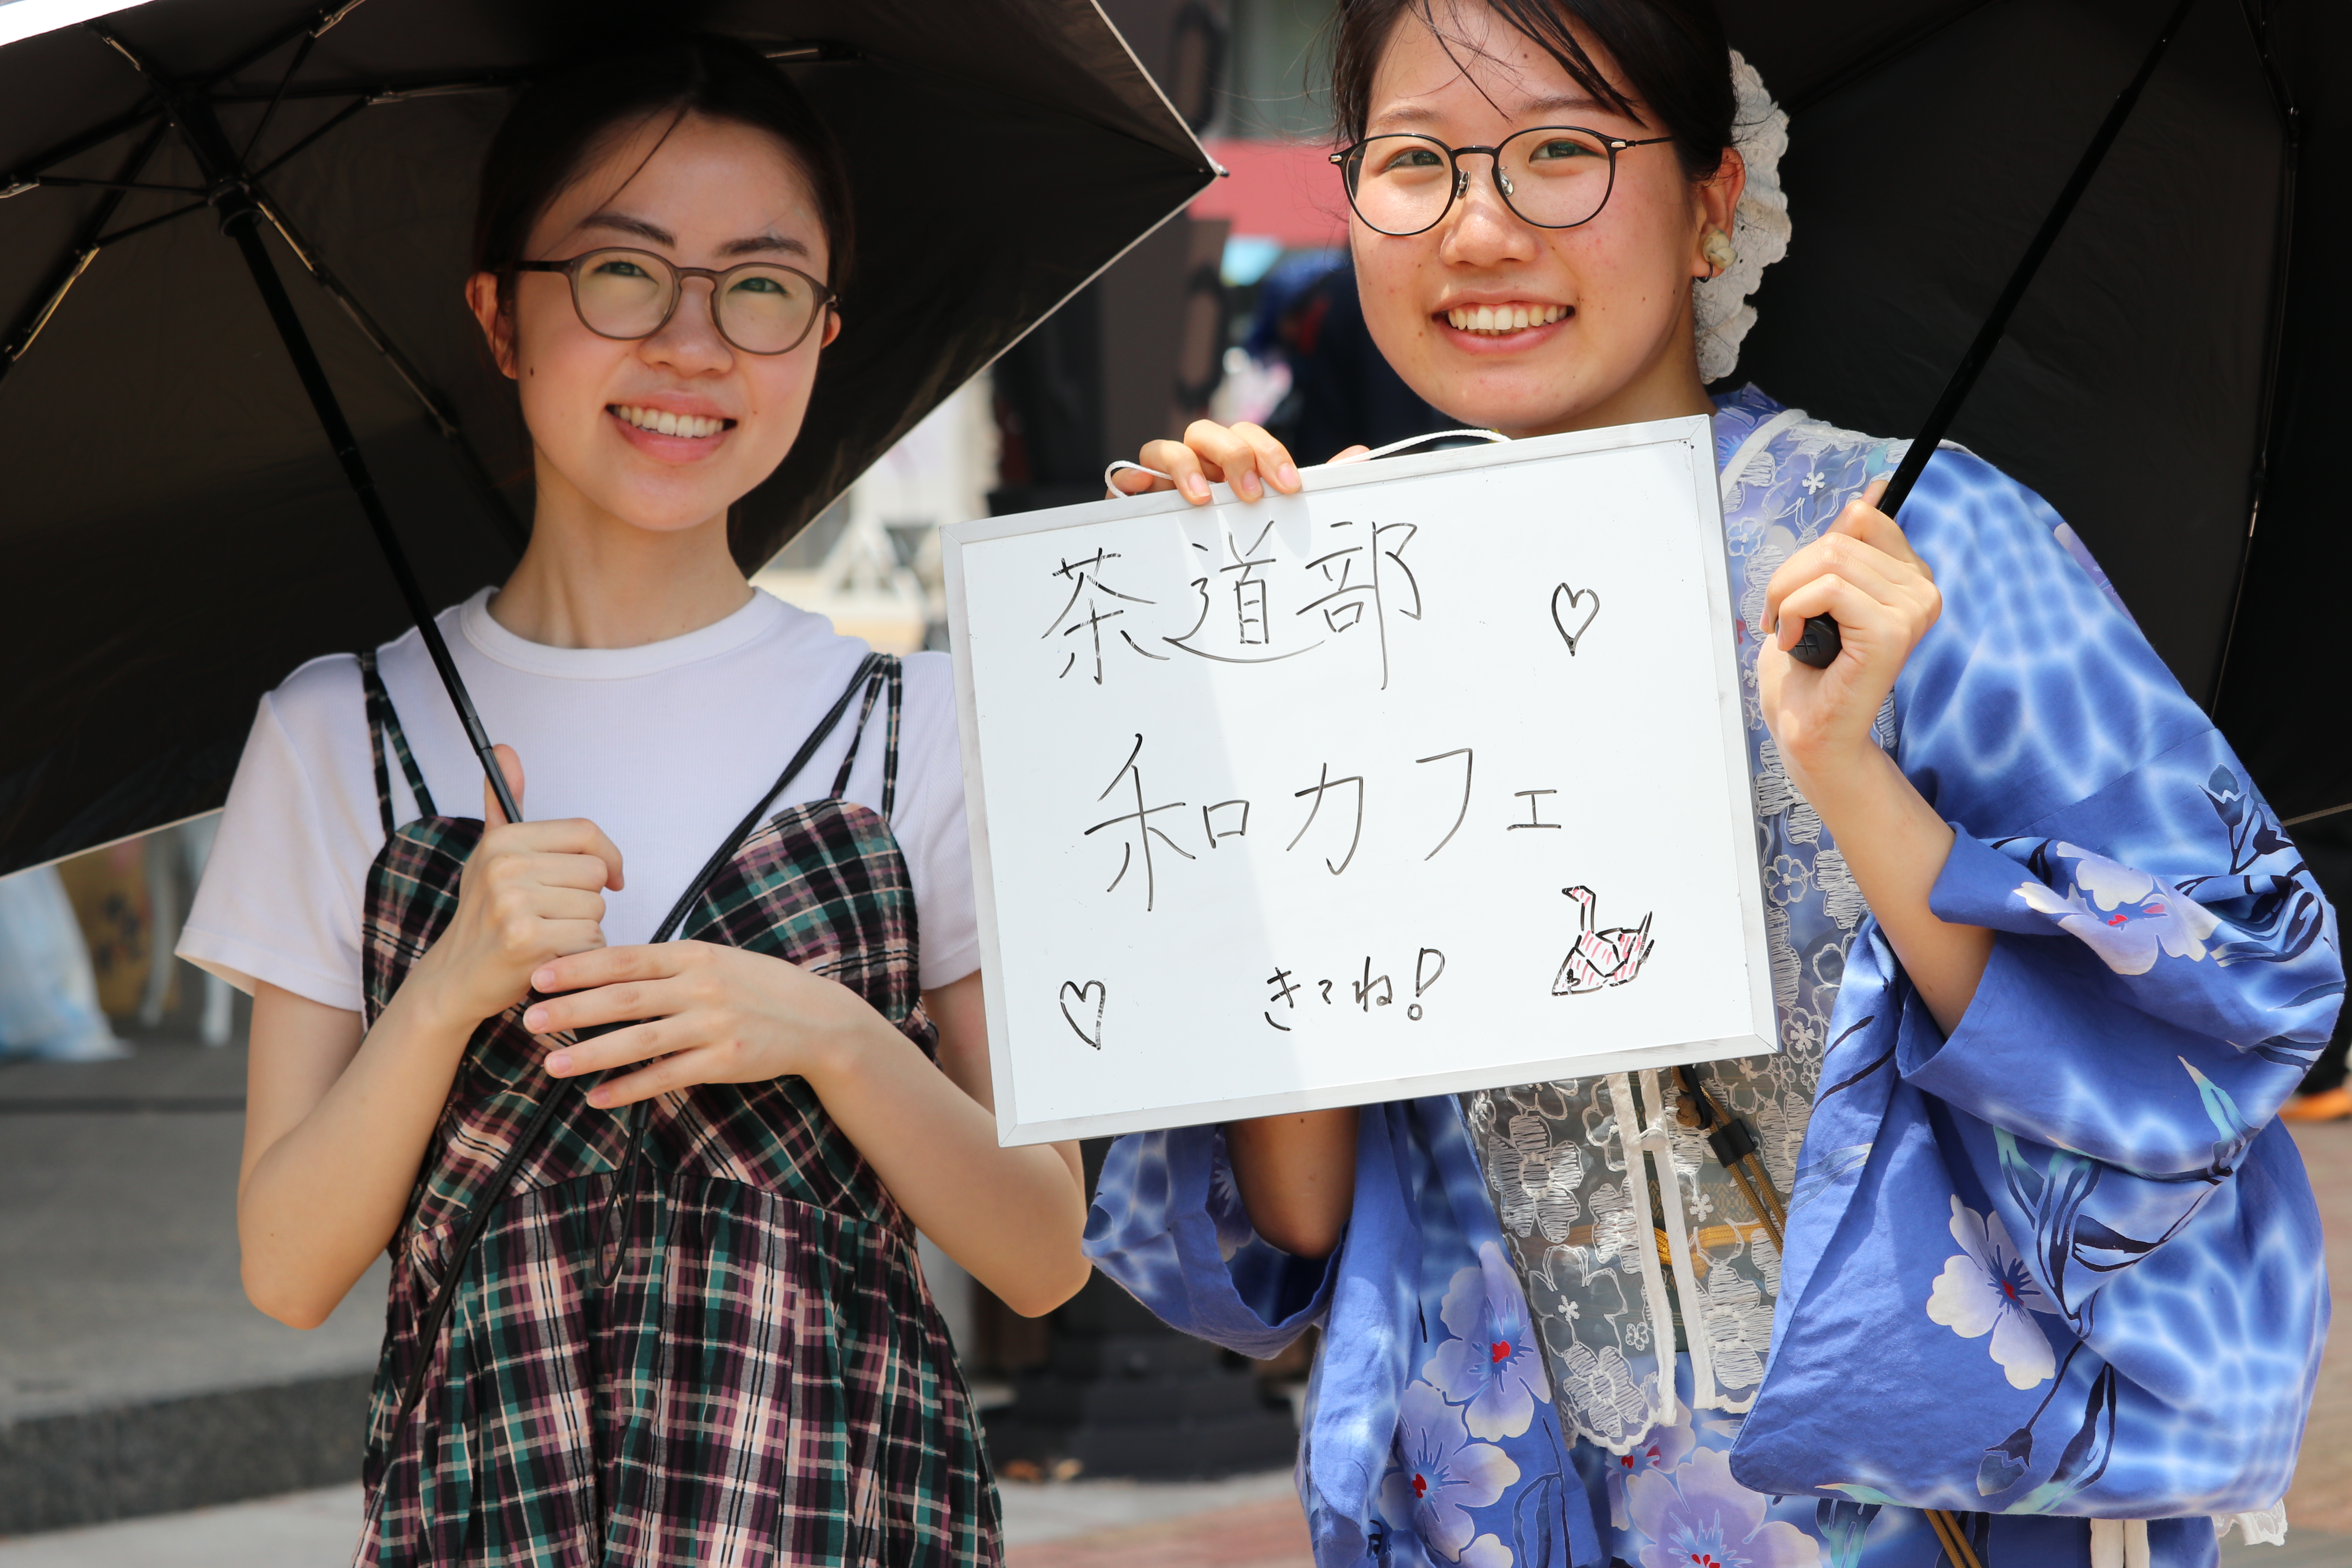 茶道部
和カフェ
きてね!